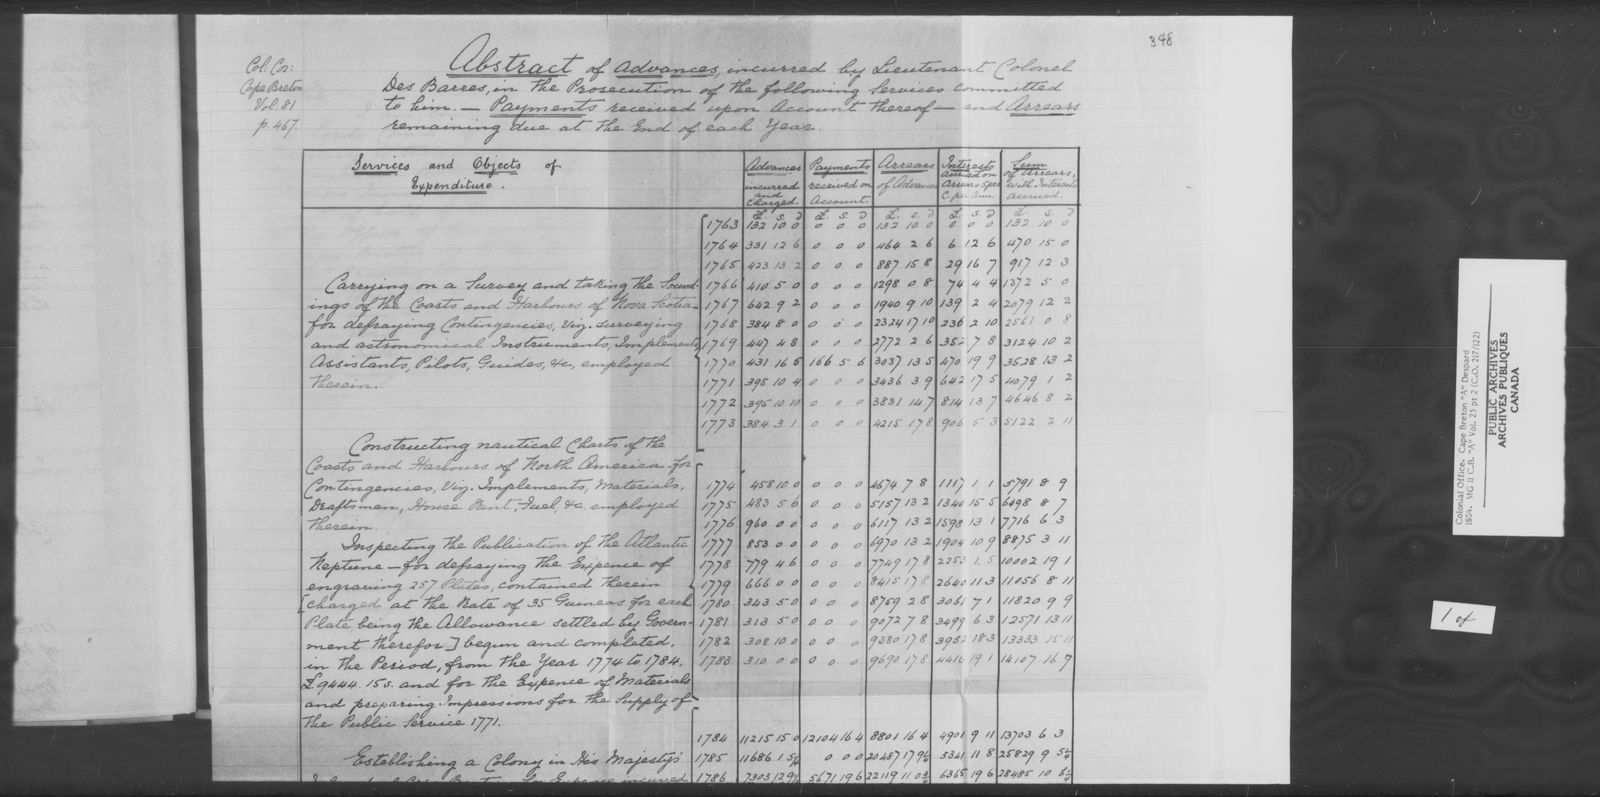 348
Col. Cor:
Cape Breton
Vol. 81
p. 467.
Abstract of Advances, incurred by Lieutenant Colonel
Des Barres, in the Prosecution of the following Services committed
to him. — Payments received upon Account thereof — and Arrears
remaining due at the End of each Year.
Services and Objects of
Expenditure.
Advances
incurred
and
Charged.
Payments
received on
Account.
Arrears
of Advances
Interests
accrued on
Arrears 5 per
C. per Ann.
Sum
of Arrears,
with Interests
accrued.
£. s. d £. s. d £. s. d £. s. d £. s. d
1763 132 10 0 0 0 0 132 10 0 0 0 0 132 10 0
1764 331 12 6 0 0 0 464 2 6 6 12 6 470 15 0
1765 423 13 2 0 0 0 887 15 8 29 16 7 917 12 3
Carrying on a Survey and taking the Sound- 1766 410 5 0 0 0 0 1298 0 8 74 4 4 1372 5 0
ings of the Coasts and Harbours of Nova Scotia— 1767 642 9 2 0 0 0 1940 9 10 139 2 4 2079 12 2
for defraying Contingencies, Viz. surveying 1768 384 8 0 0 0 0 2324 17 10 236 2 10 2561 0 8
and astronomical Instruments, Implements, 1769 447 4 8 0 0 0 2772 2 6 352 7 8 3124 10 2
Assistants, Pilots, Guides, &c, employed 1770 431 16 5 166 5 6 3037 13 5 470 19 9 3528 13 2
therein. 1771 398 10 4 0 0 0 3436 3 9 642 17 5 4079 1 2
1772 395 10 10 0 0 0 3831 14 7 814 13 7 4646 8 2
1773 384 3 1 0 0 0 4215 17 8 906 5 3 5122 2 11
Constructing nautical Charts of the
Coasts and Harbours of North America—for
Contingencies, Viz. Implements, Materials, 1774 458 10 0 0 0 0 4674 7 8 1117 1 1 5791 8 9
Draftsmen, House Rent, Fuel, &c. employed 1775 483 5 6 0 0 0 5157 13 2 1340 15 5 6498 8 7
therein. 1776 960 0 0 0 0 0 6117 13 2 1598 13 1 7716 6 3
Inspecting the Publication of the Atlantic 1777 853 0 0 0 0 0 6970 13 2 1904 10 9 8875 3 11
Neptune—for defraying the Expence of 1778 779 4 6 0 0 0 7749 17 8 2253 1 5 10002 19 1
engraving 257 Plates, contained therein 1779 666 0 0 0 0 0 8415 17 8 2640 11 3 11056 8 11
[charged at the Rate of 35 Guineas for each 1780 343 5 0 0 0 0 8759 2 8 3061 7 1 11820 9 9
Plate being the Allowance settled by Govern- 1781 313 5 0 0 0 0 9072 7 8 3499 6 3 12571 13 11
ment therefor] begun and completed, 1782 308 10 0 0 0 0 9380 17 8 3952 18 3 13333 15 11
in the Period, from the Year 1774 to 1784. 1783 310 0 0 0 0 0 9690 17 8 4416 19 1 14107 16 7
£9444. 15s. and for the Expence of Materials
and preparing Impressions for the Supply of
the Public Service 1771.
1784 11215 15 0 12104 16 4 8801 16 4 4901 9 11 13703 6 3
Establishing a Colony in His Majesty's 1785 11686 1 5¼ 0 0 0 20487 17 9¼ 5341 11 8 25829 9 5¼
1786 7303 12 9½ 5671 19 6 22119 11 0¾ 6365 19 6 28485 10 6¾
Colonial Office. Cape Breton "A" Despard
1804. MG 11 C.B. "A" Vol. 25 pt 2 (C.O. 217/122)
PUBLIC ARCHIVES
ARCHIVES PUBLIQUES
CANADA
1 of